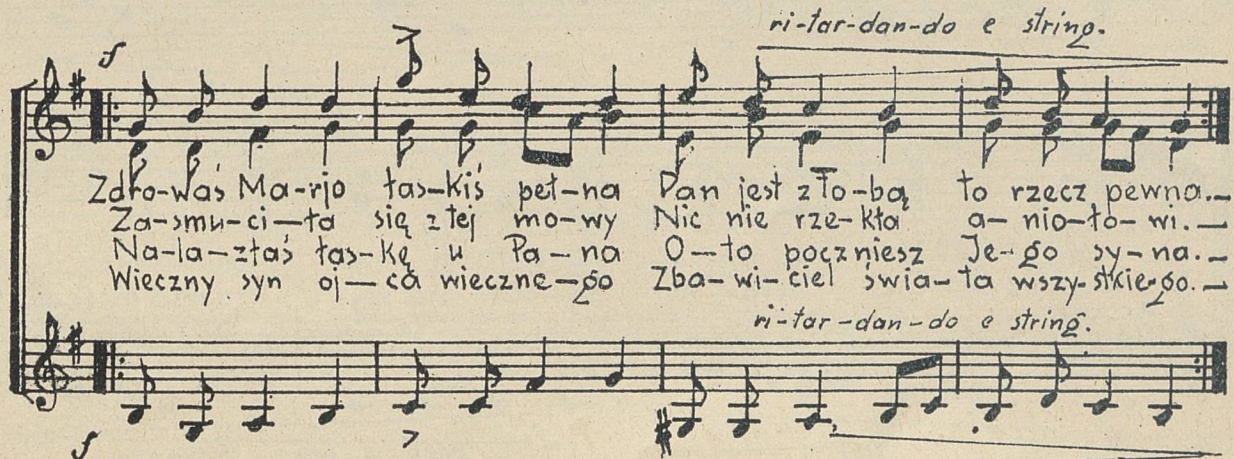 ri-tar-dan-do e string.
f
Zdro-waś Ma-rjo łas-kiś peł-na Pan jest z To-bą to rzecz pewna.—
Za-smu-ci-ła się z tej mo-wy Nic nie rze-kła a-nio-ło-wi.—
Na-la-złaś łas-kę u Pa-na O-to poczniesz Je-go sy-na.—
Wieczny syn oj-ca wieczne-go Zba-wi-ciel świa-ta wszy-stkie-go.—
ri-tar-dan-do e string.
f